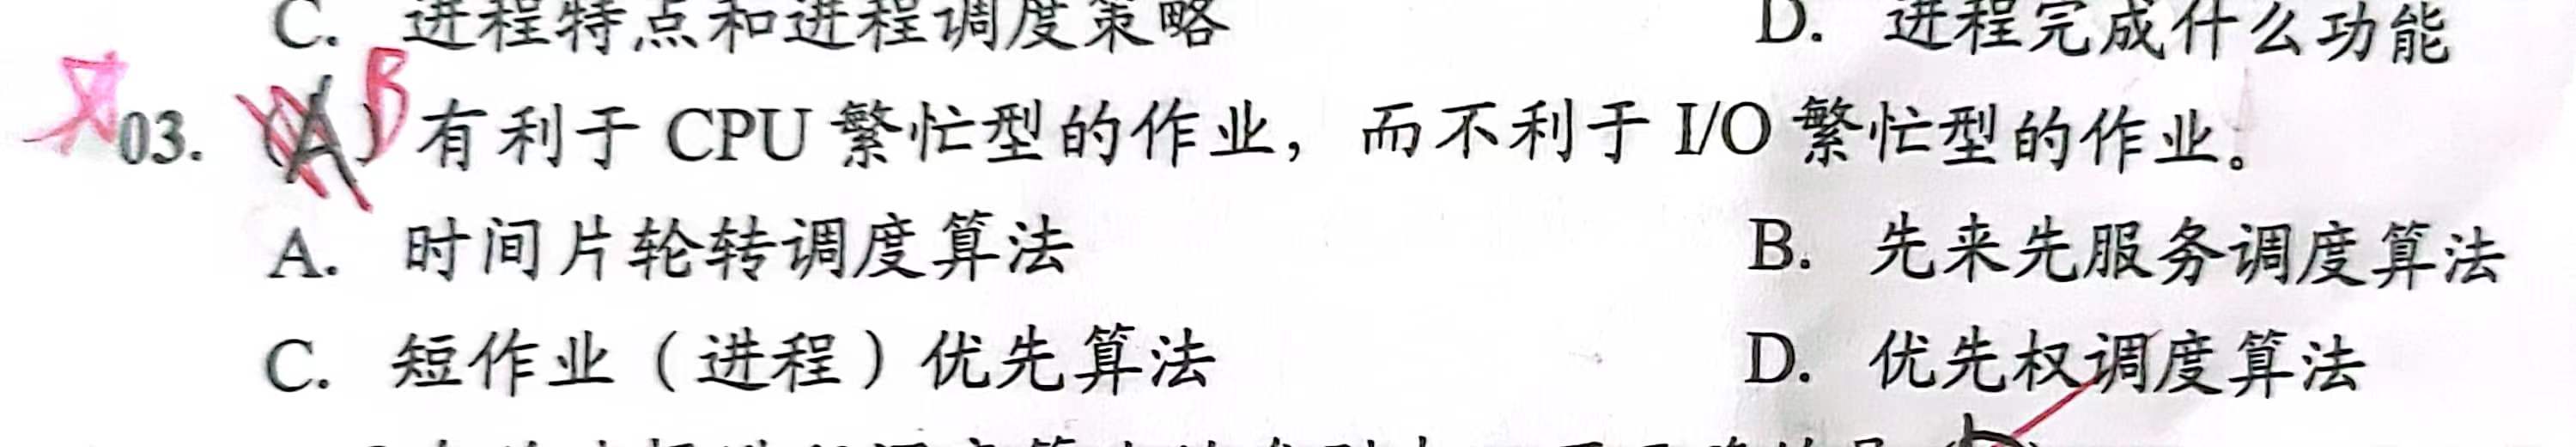 C. 进程特点和进程调度策略 D. 进程完成什么功能
03. (A) B 有利于 CPU 繁忙型的作业，而不利于 I/O 繁忙型的作业。
A. 时间片轮转调度算法 B. 先来先服务调度算法
C. 短作业（进程）优先算法 D. 优先权调度算法